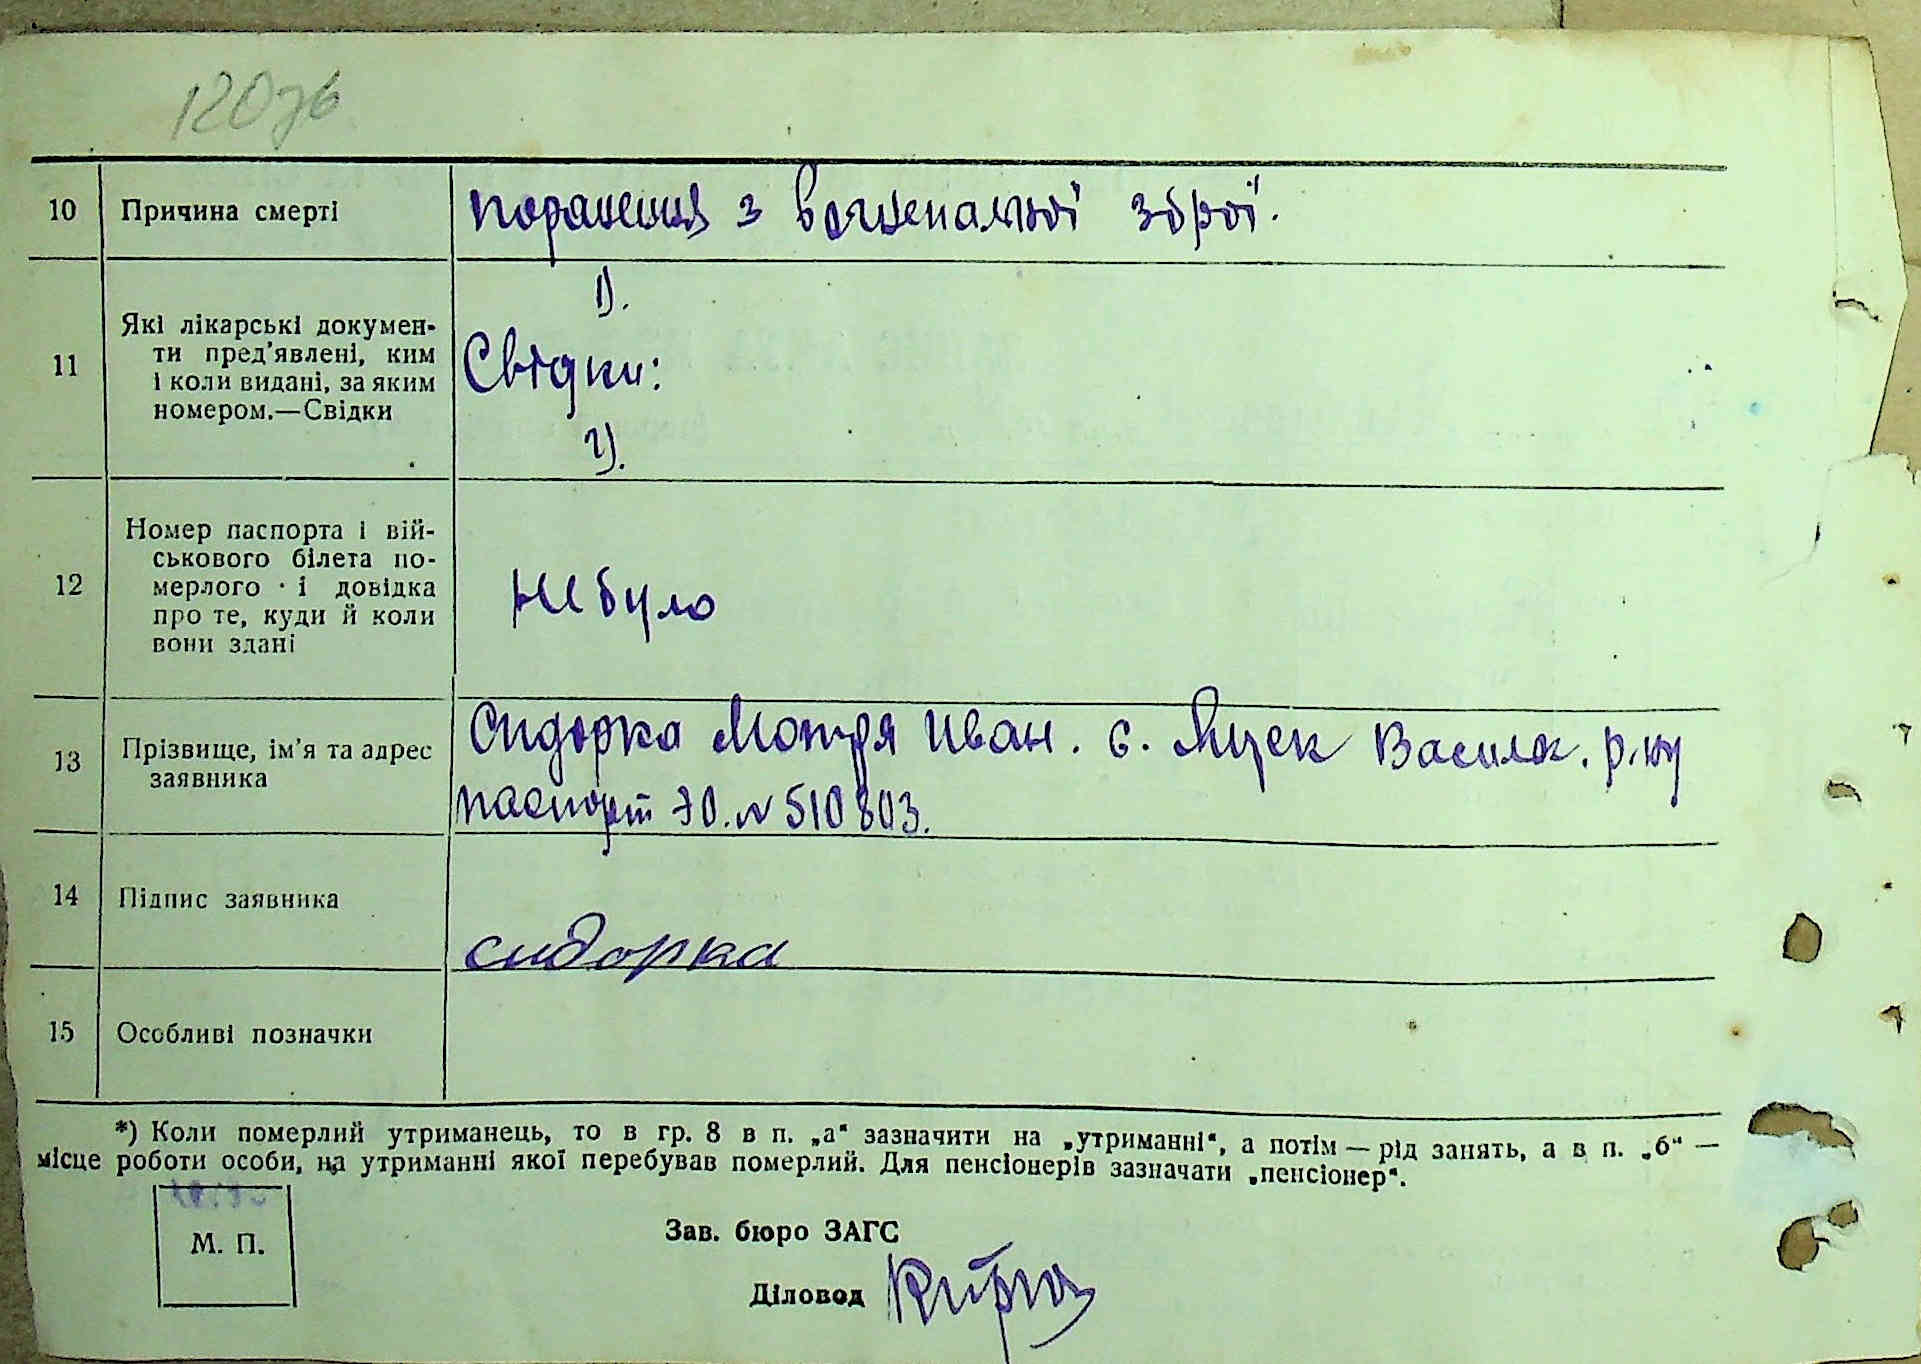 120зв
10 Причина смерті поранення з вогнепальної зброї.
1).
11 Які лікарські докумен-
ти пред'явлені, ким
і коли видані, за яким
номером.—Свідки
Свідки:
2).
12 Номер паспорта і вій-
ськового білета по-
мерлого і довідка
про те, куди й коли
вони здані
не було
13 Прізвище, ім'я та адрес
заявника
Сидорка Мотря Иван. с. Яцек Василк. р-ну
паспорт № 510803.
14 Підпис заявника
сидорка
15 Особливі позначки
*) Коли померлий утриманець, то в гр. 8 в п. „а“ зазначити на „утриманні“, а потім — рід занять, а в п. „б“ —
місце роботи особи, на утриманні якої перебував померлий. Для пенсіонерів зазначати „пенсіонер“.
М. П.
Зав. бюро ЗАГС
Діловод